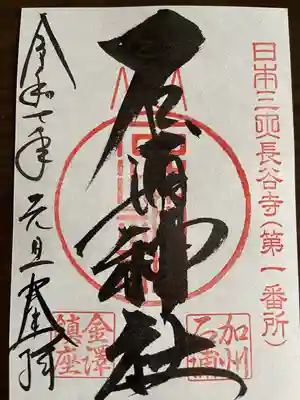 日本三長谷寺(第一番所)
石浦神社
加州
石浦
金澤
鎮座
令和七年 元旦 奉拝